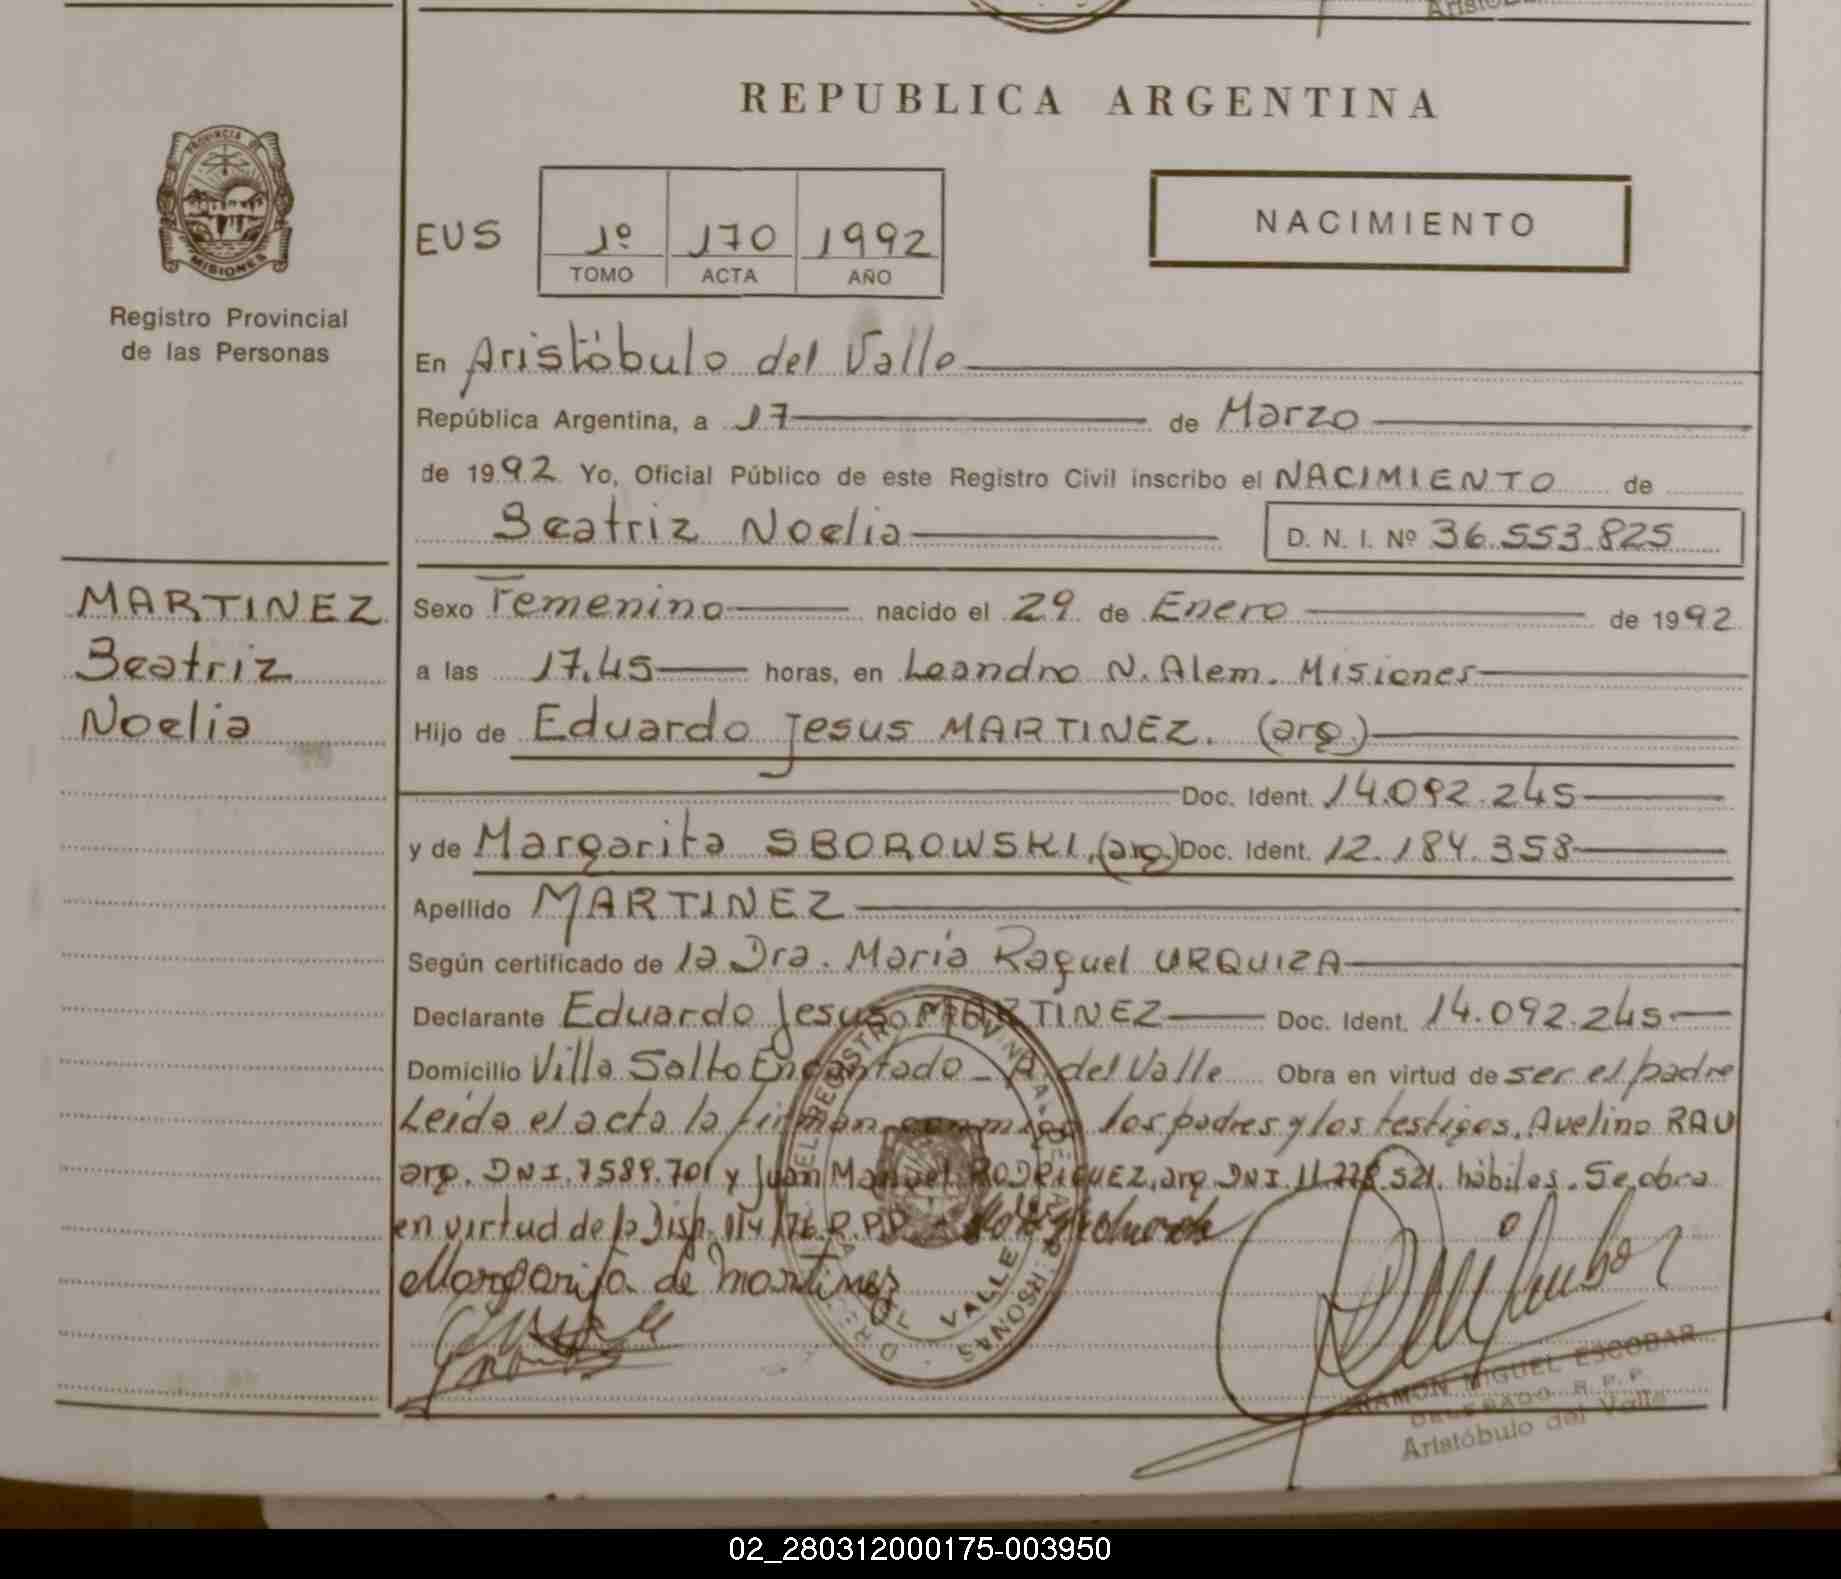 REPUBLICA ARGENTINA
PROVINCIA DE
MISIONES
Registro Provincial
de las Personas
EUS
1º 170 1992
TOMO ACTA AÑO
NACIMIENTO
En Aristóbulo del Valle
República Argentina, a 17 de Marzo
de 1992 Yo, Oficial Público de este Registro Civil inscribo el NACIMIENTO de
Beatriz Noelia D. N. I. Nº 36.553.825
MARTINEZ
Beatriz
Noelia
Sexo Femenino nacido el 29 de Enero de 1992
a las 17.45 horas, en Leandro N. Alem. Misiones
Hijo de Eduardo Jesus MARTINEZ. (arg.)
Doc. Ident. 14.092.245
y de Margarita SBOROWSKI, (arg.) Doc. Ident. 12.184.358
Apellido MARTINEZ
Según certificado de la Dra. Maria Raquel URQUIZA
Declarante Eduardo Jesus MARTINEZ Doc. Ident. 14.092.245
Domicilio Villa Salto Encantado - A del Valle Obra en virtud de ser el padre
Leida el acta la firman conmigo los padres y los testigos, Avelino RAU
arg. DNI. 7.589.701 y Juan Manuel RODRIGUEZ, arg DNI. 11.778.521. hábiles. Se obra
en virtud de la Disp. 114/76. R.P.P.
Margarita de Martinez
DEL VALLE
RAMON MIGUEL ESCOBAR
DELEGADO R. P. P.
Aristóbulo del Valle
02_280312000175-003950